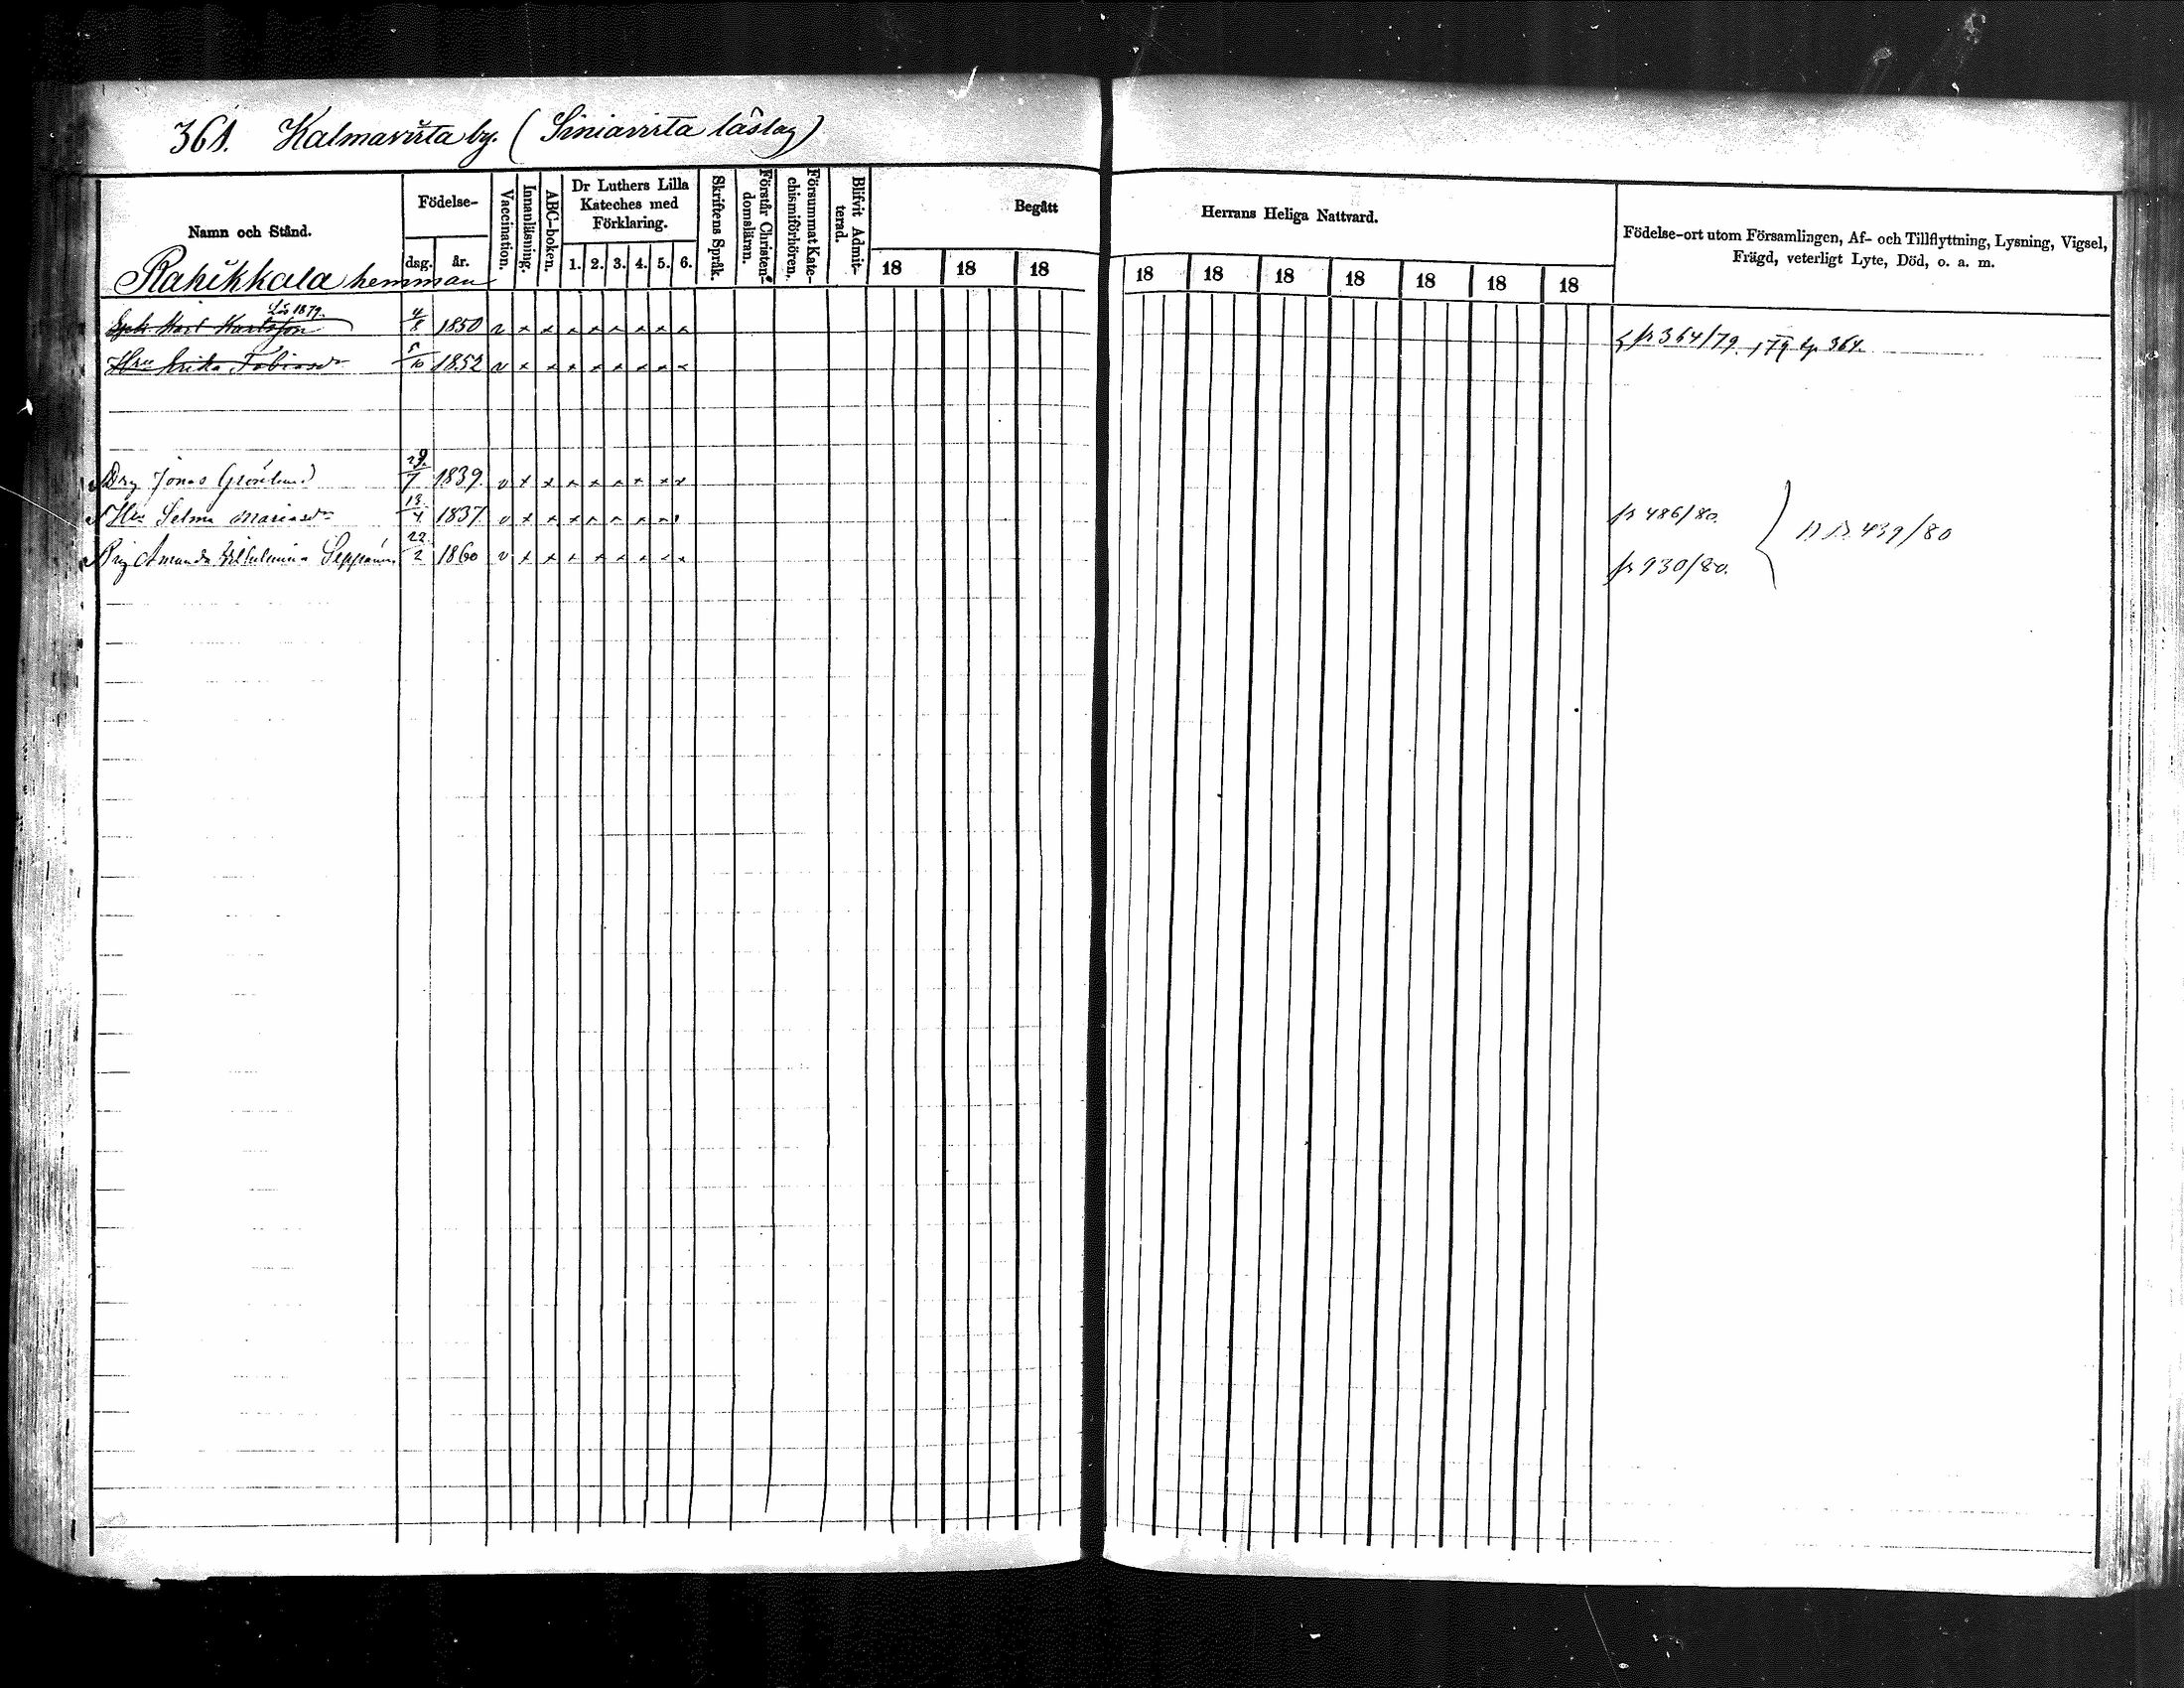 361. Kalmavirta by. (Siniavirta läslag)
Namn och Stånd.
Födelse-
dag.
år.
Vaccination.
Innanläsning.
ABC-boken.
Dr Luthers Lilla
Kateches med
Förklaring.
1. 2. 3. 4. 5. 6.
Skriftens Språk.
Förstår Christen-
domsläran.
Försummat Kate-
chismiförhören.
Blifvit Admit-
terad.
Begått
18 18 18
Herrans Heliga Nattvard.
18 18 18 18 18 18 18
Födelse-ort utom Församlingen, Af- och Tillflyttning, Lysning, Vigsel,
Frägd, veterligt Lyte, Död, o. a. m.
Rahikkala hemman
Lös 1879.
Karl Karlsson 4/8 1850 v x x x x x x x x fr 364/79.
Hru Tobiasdr 5/10 1852 v x x x x x x x x
Jonas Grönlund 29/7 1839. v x x x x x x x x
Hru Selma Mariasdr 13/4 1837. v x x x x x x x fr 486/80.
439/80
Amanda Wilhelmina 22/2 1860 v x x x x x x x x fr 930/80.